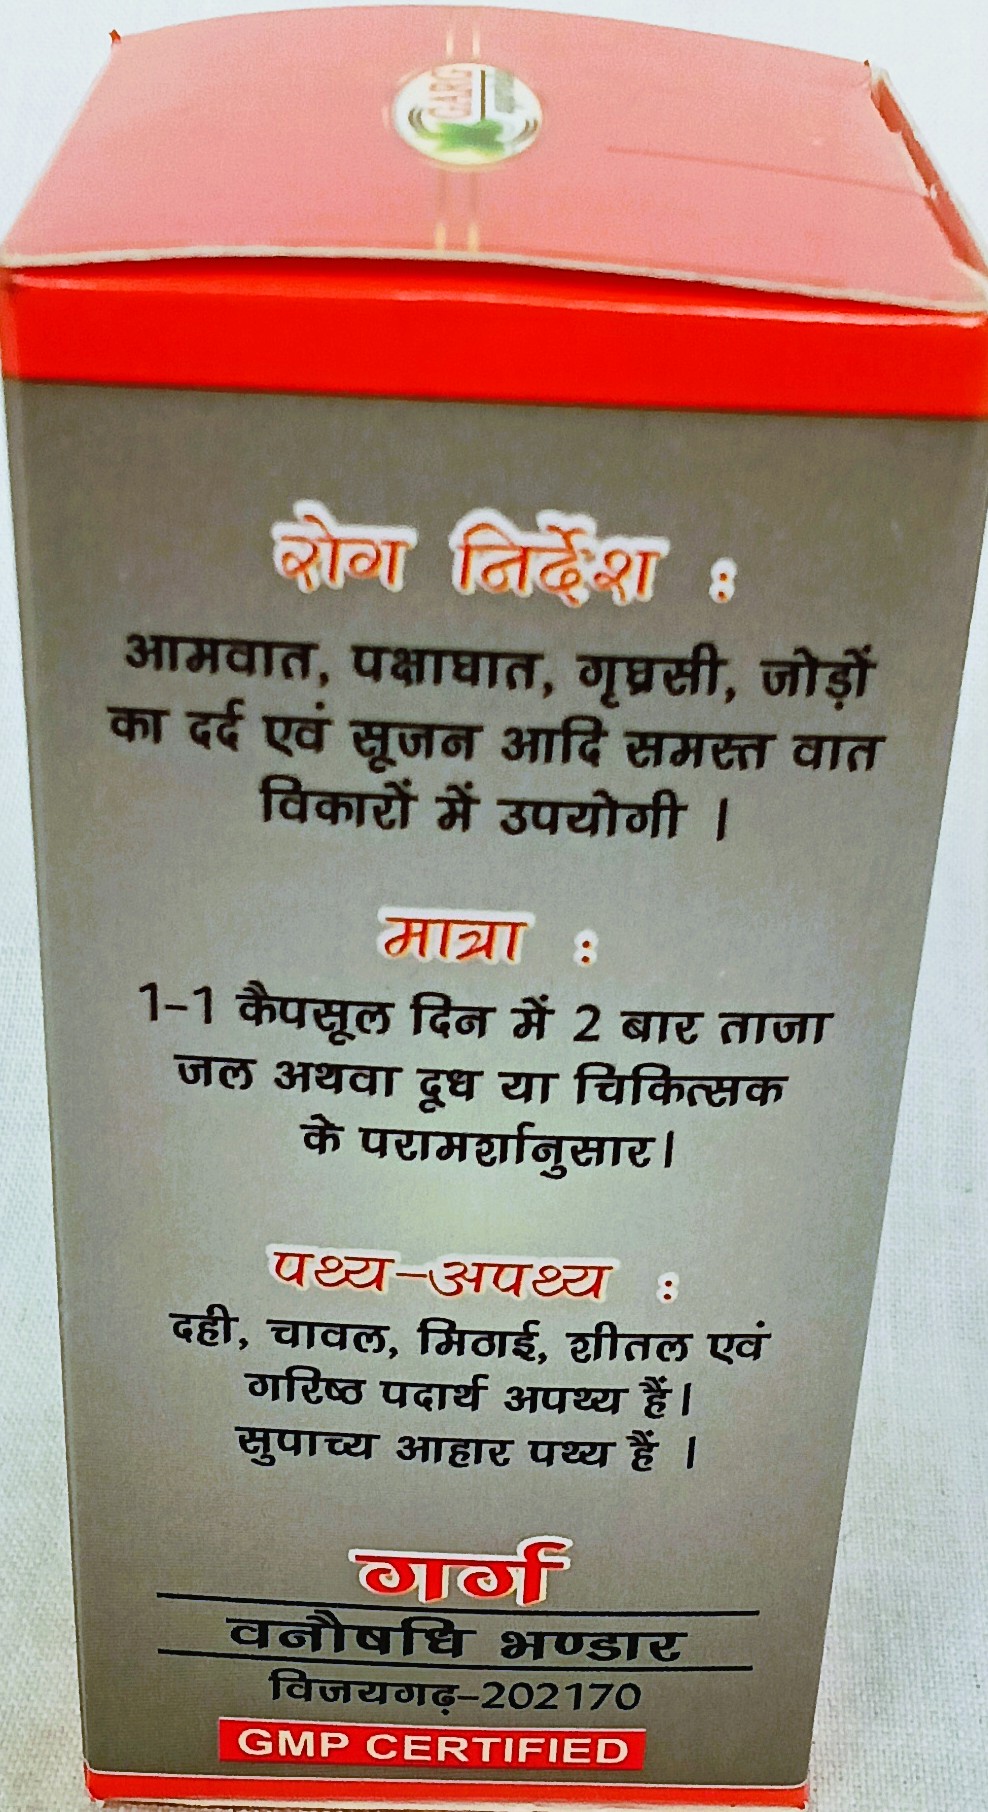 GARG
रोग निर्देश :
आमवात, पक्षाघात, गृघ्रसी, जोड़ों
का दर्द एवं सूजन आदि समस्त वात
विकारों में उपयोगी ।
मात्रा :
1-1 कैपसूल दिन में 2 बार ताजा
जल अथवा दूध या चिकित्सक
के परामर्शानुसार।
पथ्य-अपथ्य :
दही, चावल, मिठाई, शीतल एवं
गरिष्ठ पदार्थ अपथ्य हैं।
सुपाच्य आहार पथ्य हैं ।
गर्ग
वनौषधि भण्डार
विजयगढ़-202170
GMP CERTIFIED